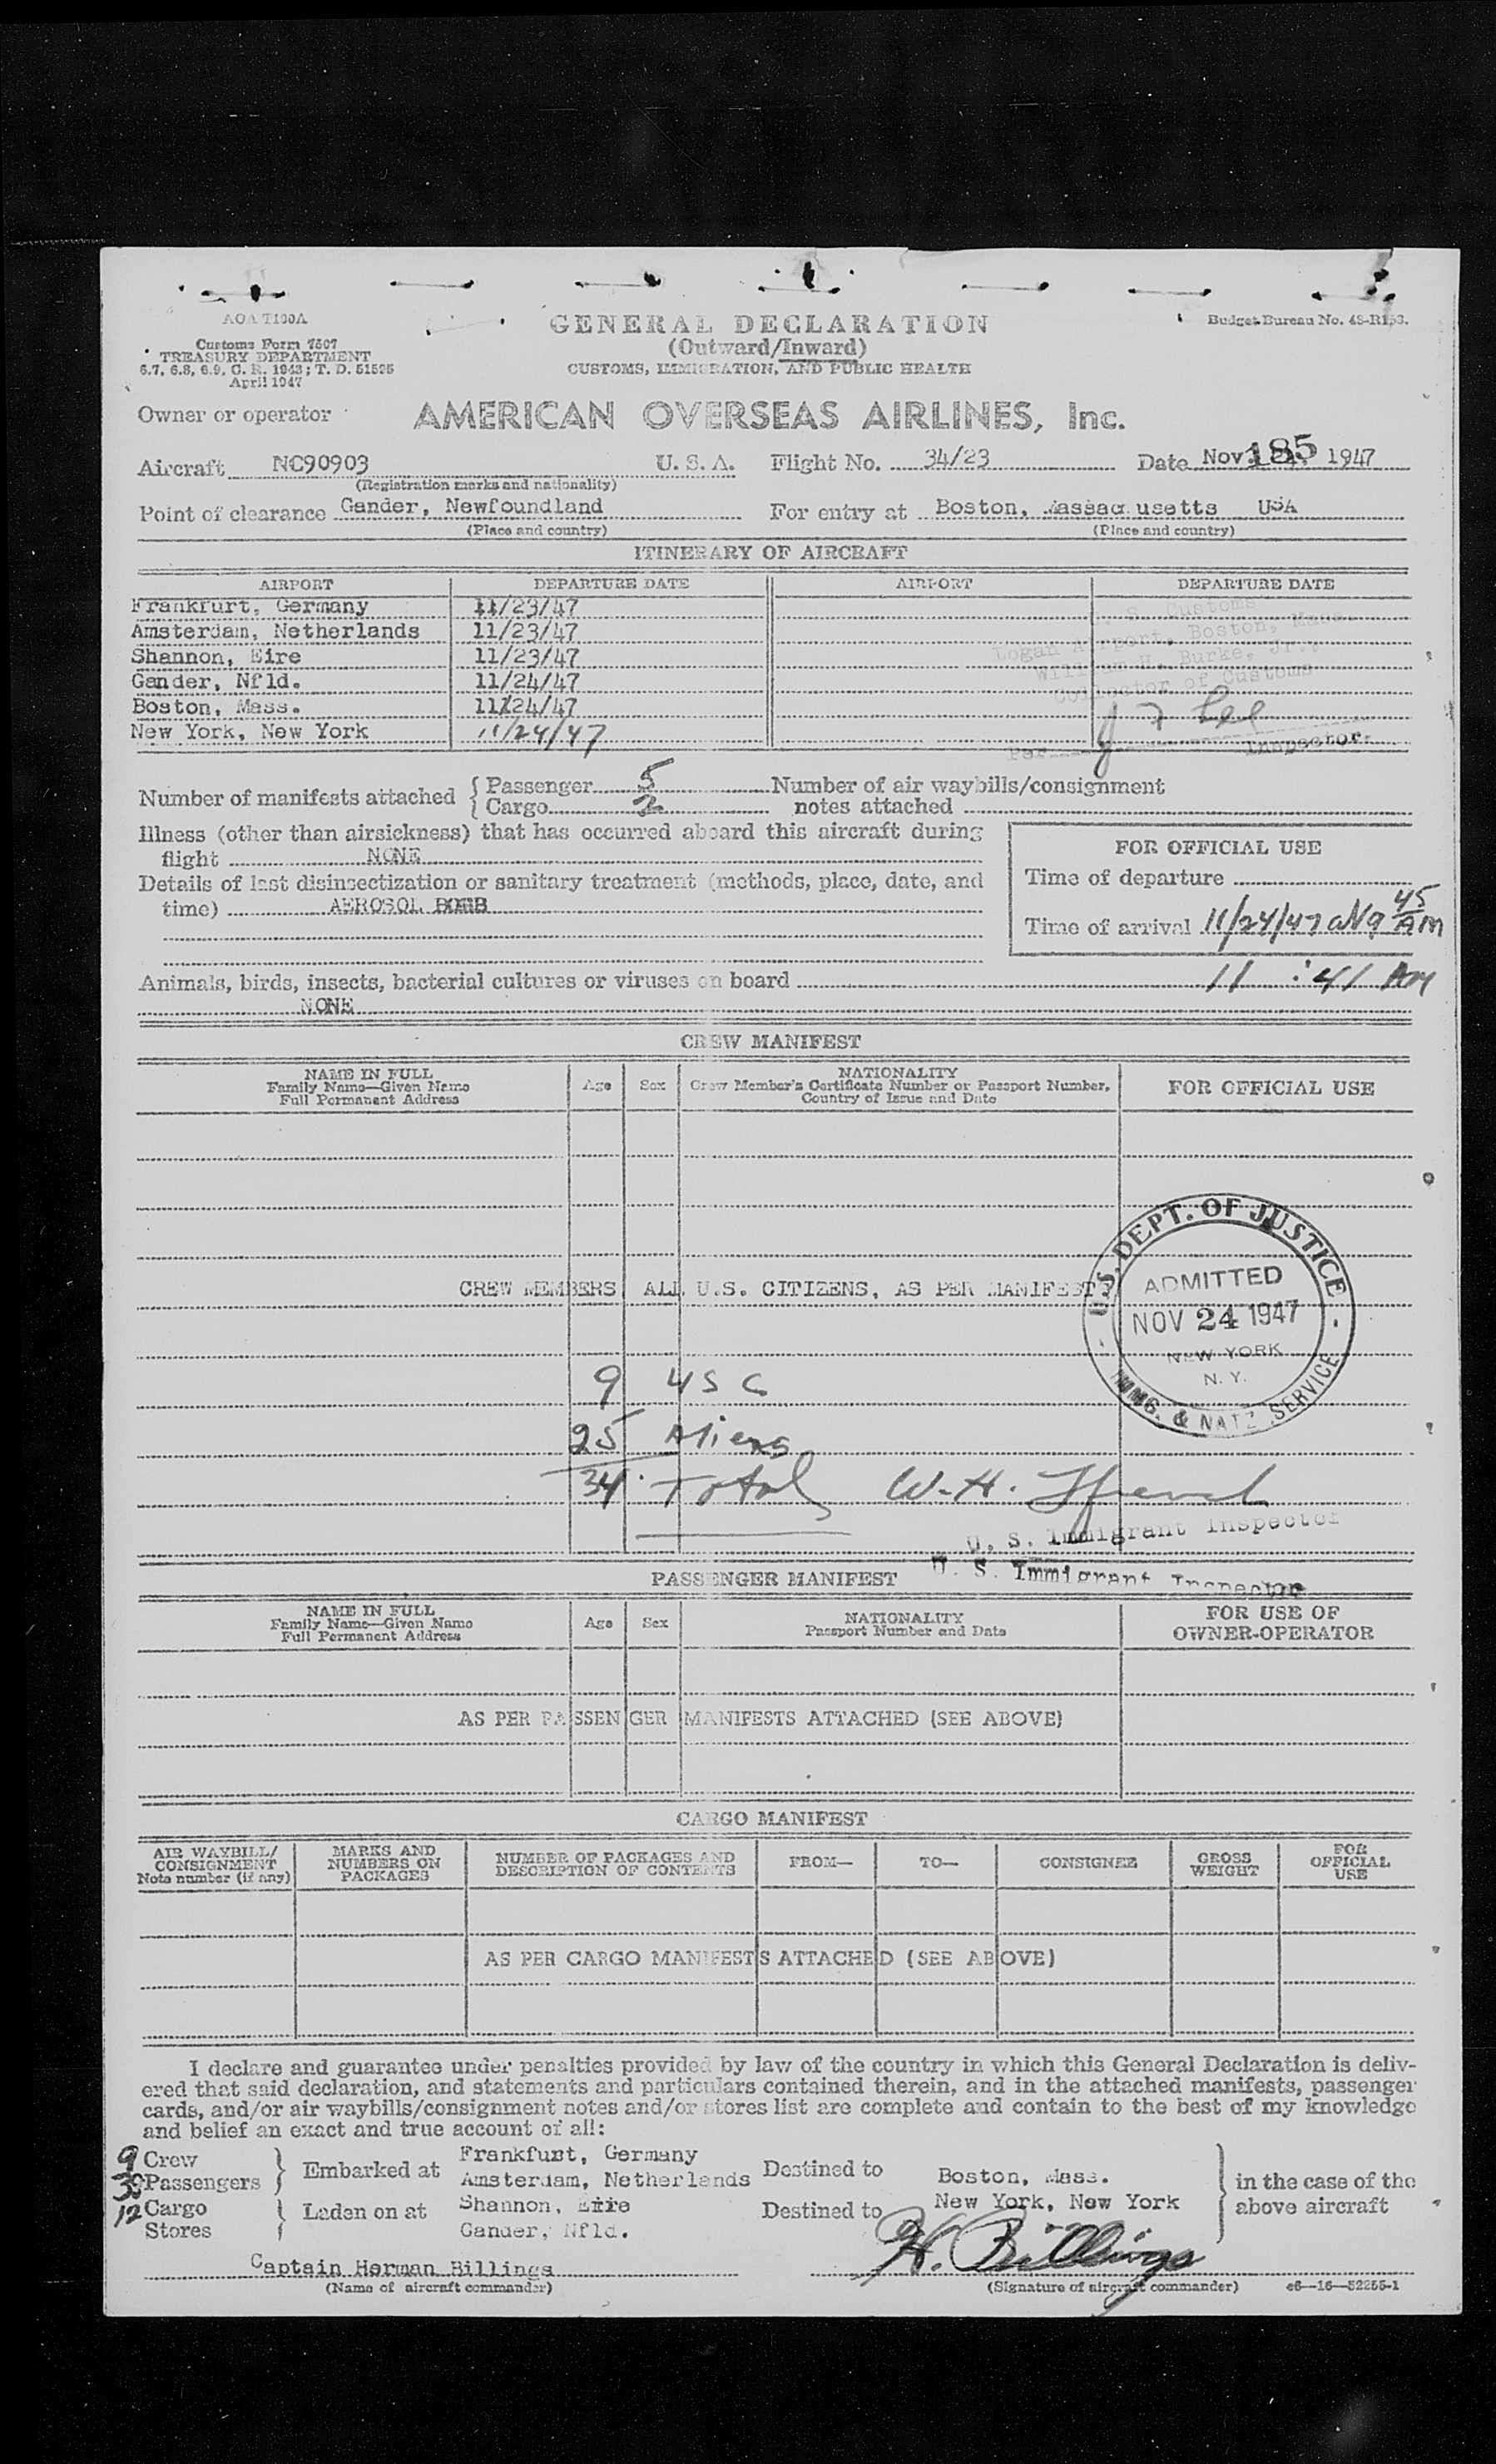 AOA T100A
Customs Form 7507
TREASURY DEPARTMENT
6.7, 6.8, 6.9, C. R. 1943; T. D. 51595
April 1947
GENERAL DECLARATION
(Outward/Inward)
CUSTOMS, IMMIGRATION, AND PUBLIC HEALTH
Budget Bureau No. 48-R153.
Owner or operator AMERICAN OVERSEAS AIRLINES, Inc.
Aircraft NC90903 U. S. A. Flight No. 34/23 Date Nov 1947
185
(Registration marks and nationality)
Point of clearance Gander, Newfoundland For entry at Boston, Massachusetts USA
(Place and country) (Place and country)
ITINERARY OF AIRCRAFT
AIRPORT DEPARTURE DATE AIRPORT DEPARTURE DATE
Frankfurt, Germany 11/23/47
Amsterdam, Netherlands 11/23/47
Shannon, Eire 11/23/47
Gander, Nfld. 11/24/47
Boston, Mass. 11/24/47
New York, New York 11/24/47
U. S. Customs
Logan Airport, Boston, Mass.
William H. Burke, Jr.,
Collector of Customs
Per J Lee Inspector.
Number of manifests attached { Passenger 5 Number of air waybills/consignment
Cargo 2 notes attached
Illness (other than airsickness) that has occurred aboard this aircraft during
flight NONE
Details of last disinsectization or sanitary treatment (methods, place, date, and
time) AEROSOL BOMB
FOR OFFICIAL USE
Time of departure
Time of arrival 11/24/47 9 45 AM
Animals, birds, insects, bacterial cultures or viruses on board 11:41 AM
NONE
CREW MANIFEST
NAME IN FULL
Family Name—Given Name
Full Permanent Address
Age Sex
NATIONALITY
Crew Member's Certificate Number or Passport Number,
Country of Issue and Date
FOR OFFICIAL USE
CREW MEMBERS ALL U.S. CITIZENS, AS PER MANIFEST
U.S. DEPT. OF JUSTICE
ADMITTED
NOV 24 1947
NEW YORK
N. Y.
IMMG. & NATZ. SERVICE
9 USC
25 Aliens
34 Total W. H.
U. S. Immigrant Inspector
U. S. Immigrant Inspector
PASSENGER MANIFEST
NAME IN FULL
Family Name—Given Name
Full Permanent Address
Age Sex
NATIONALITY
Passport Number and Date
FOR USE OF
OWNER-OPERATOR
AS PER PASSENGER MANIFESTS ATTACHED (SEE ABOVE)
CARGO MANIFEST
AIR WAYBILL/
CONSIGNMENT
Note number (if any)
MARKS AND
NUMBERS ON
PACKAGES
NUMBER OF PACKAGES AND
DESCRIPTION OF CONTENTS
FROM—
TO—
CONSIGNEE
GROSS
WEIGHT
FOR
OFFICIAL
USE
AS PER CARGO MANIFESTS ATTACHED (SEE ABOVE)
I declare and guarantee under penalties provided by law of the country in which this General Declaration is deliv-
ered that said declaration, and statements and particulars contained therein, and in the attached manifests, passenger
cards, and/or air waybills/consignment notes and/or stores list are complete and contain to the best of my knowledge
and belief an exact and true account of all:
9 Crew
Passengers
12 Cargo
Stores
Embarked at
Laden on at
Frankfurt, Germany
Amsterdam, Netherlands
Shannon, Eire
Gander, Nfld.
Destined to
Destined to
Boston, Mass.
New York, New York
in the case of the
above aircraft
Captain Herman Billings
H. Billings
(Name of aircraft commander) (Signature of aircraft commander) c6—16—52255-1